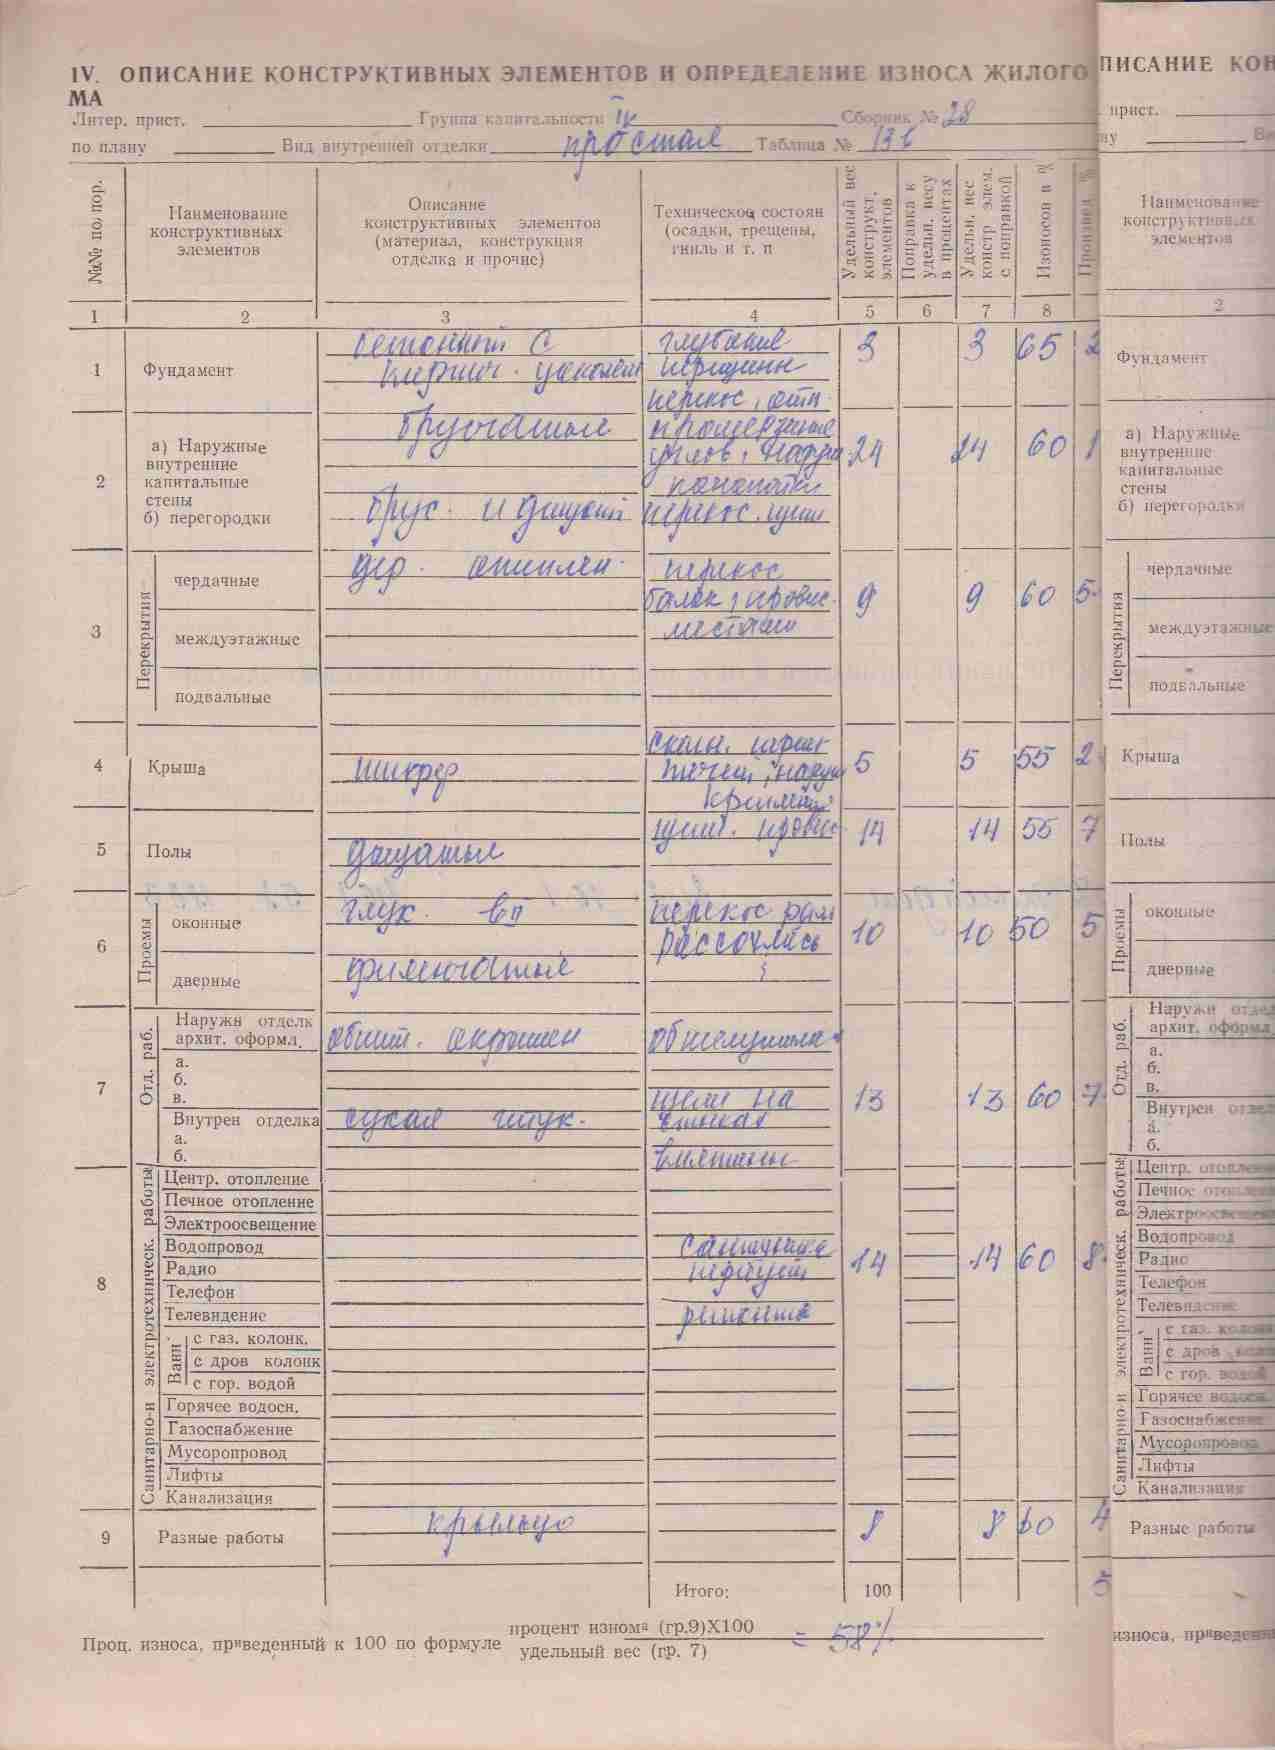 IV. ОПИСАНИЕ КОНСТРУКТИВНЫХ ЭЛЕМЕНТОВ И ОПРЕДЕЛЕНИЕ ИЗНОСА ЖИЛОГО
МА
Литер. прист. Группа капитальности IV Сборник № 28
по плану Вид внутренней отделки простая Таблица № 13
№№ по/пор.
Наименование конструктивных элементов
Описание конструктивных элементов (материал, конструкция отделка и прочие)
Техническое состоян (осадки, трещены, гниль и т. п
Удельный вес конструкт. элементов
Поправка к удельн. весу в процентах
Удельн. вес констр элем. с поправкой
Изоносов в %
Произвед. %
1 2 3 4 5 6 7 8
1 Фундамент бетонный с кирпич. цоколем глубокие трещины 3 3 65 2
2 а) Наружные внутренние капитальные стены брусчатые перекос, отп. промерзание углов, наруш конопатки 24 24 60 1
б) перегородки брус. и дощат перекос щели
3 Перекрытия
чердачные дер. утеплен. перекос балок, провис. местами 9 9 60 5
междуэтажные
подвальные
4 Крыша шифер течи, наруш креплений 5 5 55 2
5 Полы дощатые щели. провис. 14 14 55 7
6 Проемы
оконные глух. перекос рам рассохлись 10 10 50 5
дверные филенчатые
7 Отд. раб.
Наружн отделк архит. оформл. обшит. окрашен 13 13 60 7
а.
б.
в.
Внутрен отделка сухая штук. щели на стыках
а.
б.
8 Санитарно-и электротехническ. работы 14 14 60 8
Центр. отопление
Печное отопление
Электроосвещение
Водопровод
Радио требует
Телефон
Телевидение ремонта
Ванн
с газ. колонк.
с дров колонк
с гор. водой
Горячее водосн.
Газоснабжение
Мусоропровод
Лифты
Канализация
9 Разные работы крыльцо 8 8 60 4
Итого: 100 5
Проц. износа, приведенный к 100 по формуле процент износа (гр.9)X100 = 58%
удельный вес (гр. 7)
ПИСАНИЕ КОН
прист.
ну
Наименование конструктивных элементов
2
Фундамент
а) Наружные
внутренние
капитальные
стены
б) перегородки
Перекрытия
чердачные
междуэтажные
подвальные
Крыша
Полы
Проемы
оконные
дверные
Отд. раб.
Наружн отдел
архит. оформл
а.
б.
в.
Внутрен отдел
а.
б.
Санитарно-и электротехническ. работы
Центр. отоплени
Печное отоплени
Электроосвещени
Водопровод
Радио
Телефон
Телевидение
Ванн
с газ. колонк
с дров колон
с гор. водой
Горячее водосн.
Газоснабжение
Мусоропровод
Лифты
Канализация
Разные работы
износа, приведенн